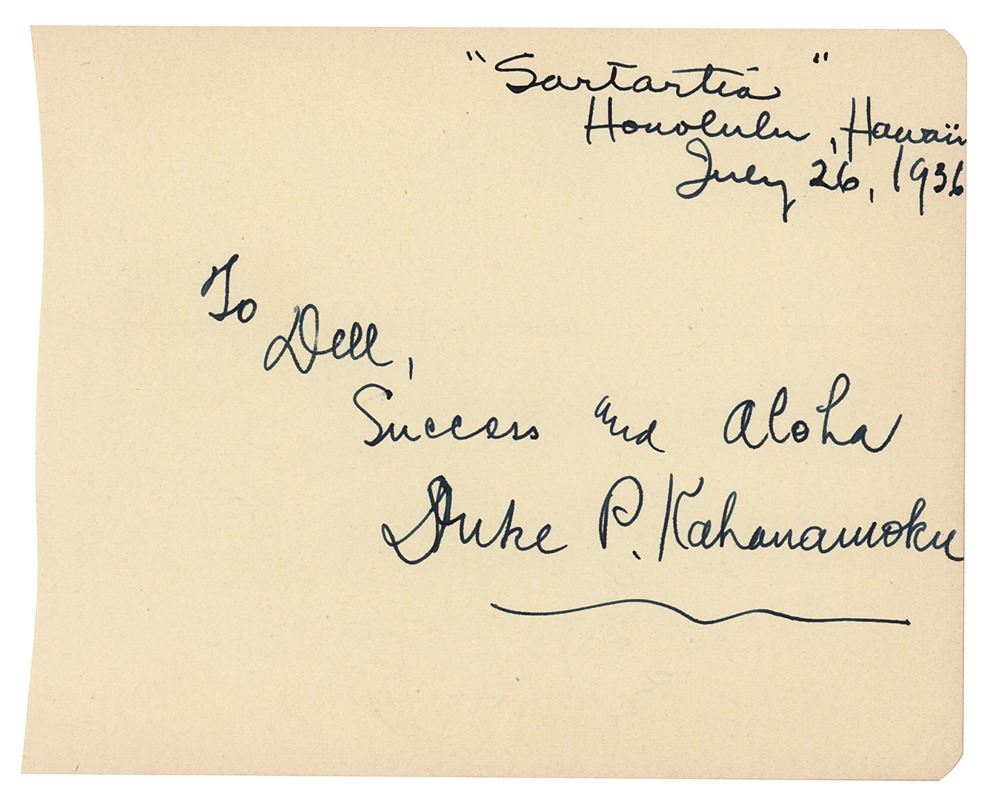 "Sartartia"
Honolulu, Hawaii
July 26, 1936
To
Dell,
Success and Aloha
Duke P. Kahanamoku